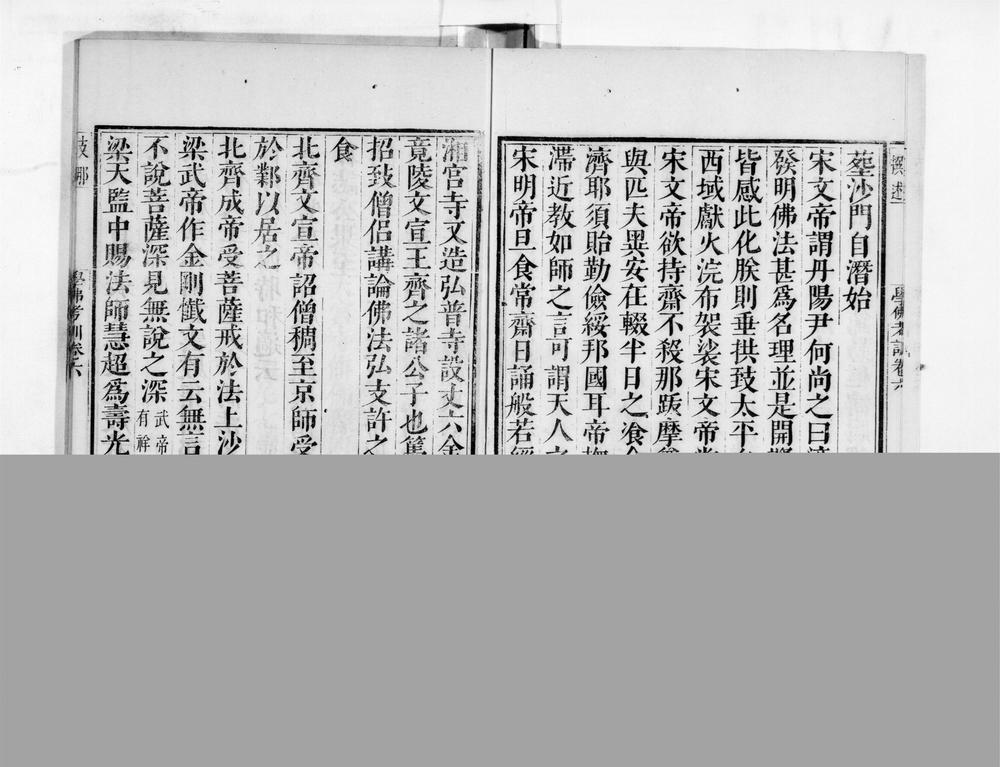 學佛考訓卷六
塟沙門自潛始
宋文帝謂丹陽尹何尚之曰
發明佛法甚爲名理並是開
皆感此化朕則垂拱致太平
西域獻火浣布袈裟宋文帝
宋文帝欲持齋不殺那跋摩
與匹夫異安在輟半日之飡
濟耶須貽勤儉綏邦國耳帝
滯近教如師之言可謂天人
宋明帝旦食常齋日誦般若
湘宮寺又造弘普寺設丈六金
竟陵文宣王齊之諸公子也篤
招致僧侶講論佛法弘支許之
食
北齊文宣帝詔僧稠至京師受
於鄴以居之
北齊成帝受菩薩戒於法上沙
梁武帝作金剛懺文有云無言
不說菩薩深見無說之深武帝
有
梁天監中賜法師慧超爲壽光
學佛考訓卷六